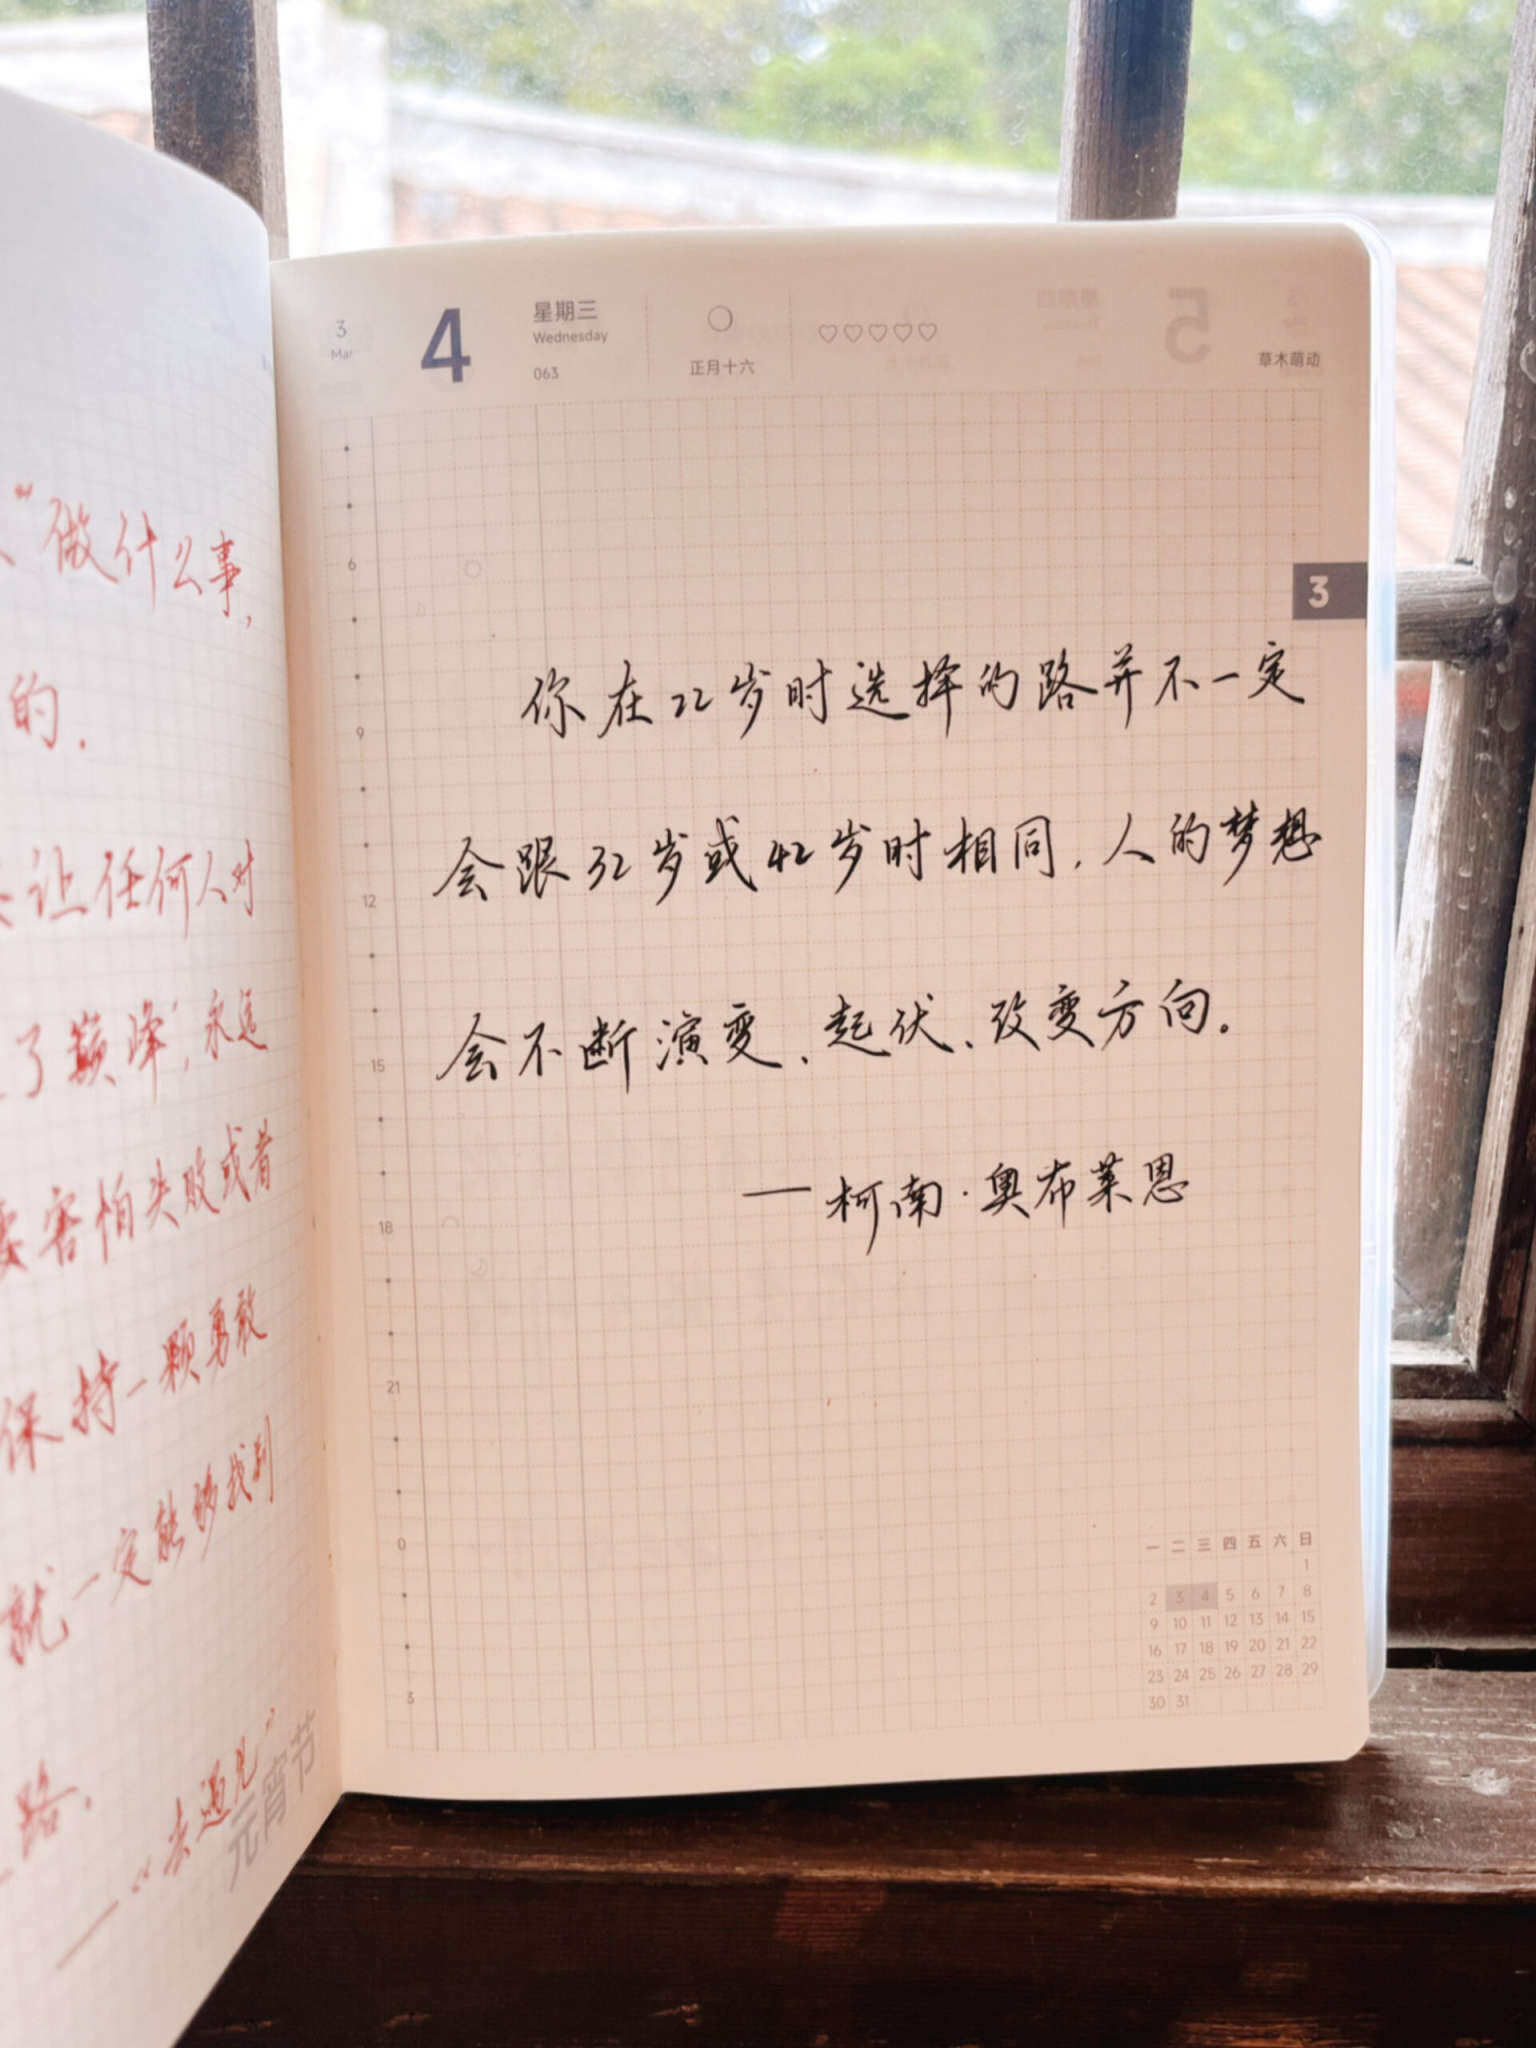 ”做什么事,
的.
让任何人对
了巅峰”,永远
要害怕失败或者
保持一颗勇敢
就一定能够找到
路.
—“去遇见”
元宵节
3
Mar
4
星期三
Wednesday
063
正月十六
♡♡♡♡♡
5
草木萌动
3
6
9
12
15
18
21
0
3
你在22岁时选择的路并不一定
会跟32岁或42岁时相同,人的梦想
会不断演变、起伏、改变方向。
—柯南·奥布莱恩
一 二 三 四 五 六 日
1
2 3 4 5 6 7 8
9 10 11 12 13 14 15
16 17 18 19 20 21 22
23 24 25 26 27 28 29
30 31